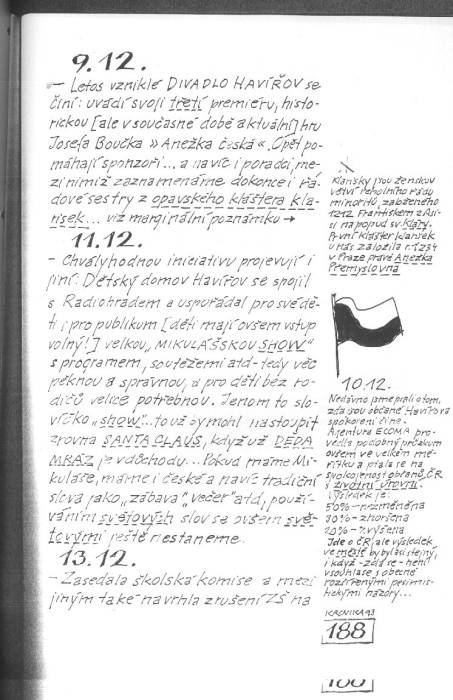 9.12.
– Letos vzniklé DIVADLO HAVÍŘOV se
činí: uvádí svoji třetí premiéru, histo-
rickou [ale v současné době aktuální] hru
Josefa Boučka »Anežka česká«. Opět po-
máhají sponzoři... a navíc i poradci, me-
zi nimiž zaznamenáme dokonce i řá-
dové sestry z opavského kláštera kla-
risek... viz marginální poznámku →
11.12.
– Chvályhodnou iniciativu projevují i
jiní: Dětský domov Havířov se spojil
s Radiohradem a uspořádal pro své dě-
ti i pro publikum [děti mají ovšem vstup
volný!] velkou „MIKULÁŠSKOU SHOW“
s programem, soutěžemi atd - tedy věc
pěknou a správnou, a pro děti bez ro-
dičů velice potřebnou. Jenom to slo-
víčko „show“... to už by mohl nastoupit
zrovna SANTA CLAUS, když už DĚDA
MRÁZ je v důchodu... Pokud máme Mi-
kuláše, máme i české a navíc tradiční
slova jako „zábava“, „večer“ atd, použí-
váním světových slov se ovšem svě-
tovými ještě nestaneme.
13.12.
– Zasedala školská komise a mezi
jiným také navrhla zrušení ZŠ na
Klarisky jsou ženskou
větví řeholního řádu
minoritů, založeného
1212 Františkem z Asi-
si na popud sv. Kláry.
První klášter klarisek
u nás založila r. 1234
v Praze právě Anežka
Přemyslovna
10.12.
Nedávno jsme psali o tom,
zda jsou občané Havířova
spokojení či ne.
Agentura ECOMA pro-
vedla podobný průzkum
ovšem ve velkém mě-
řítku a ptala se na
spokojenost občanů ČR
s životní úrovní.
Výsledek je:
50% – nezměněna
30% – zhoršena
20% – zvýšena
Jde o ČR, ale výsledek
ve městě by byl asi stejný,
i když - zdá se - není
v souhlase s obecně
rozšířenými pesimis-
tickými názory...
KRONIKA 93
188